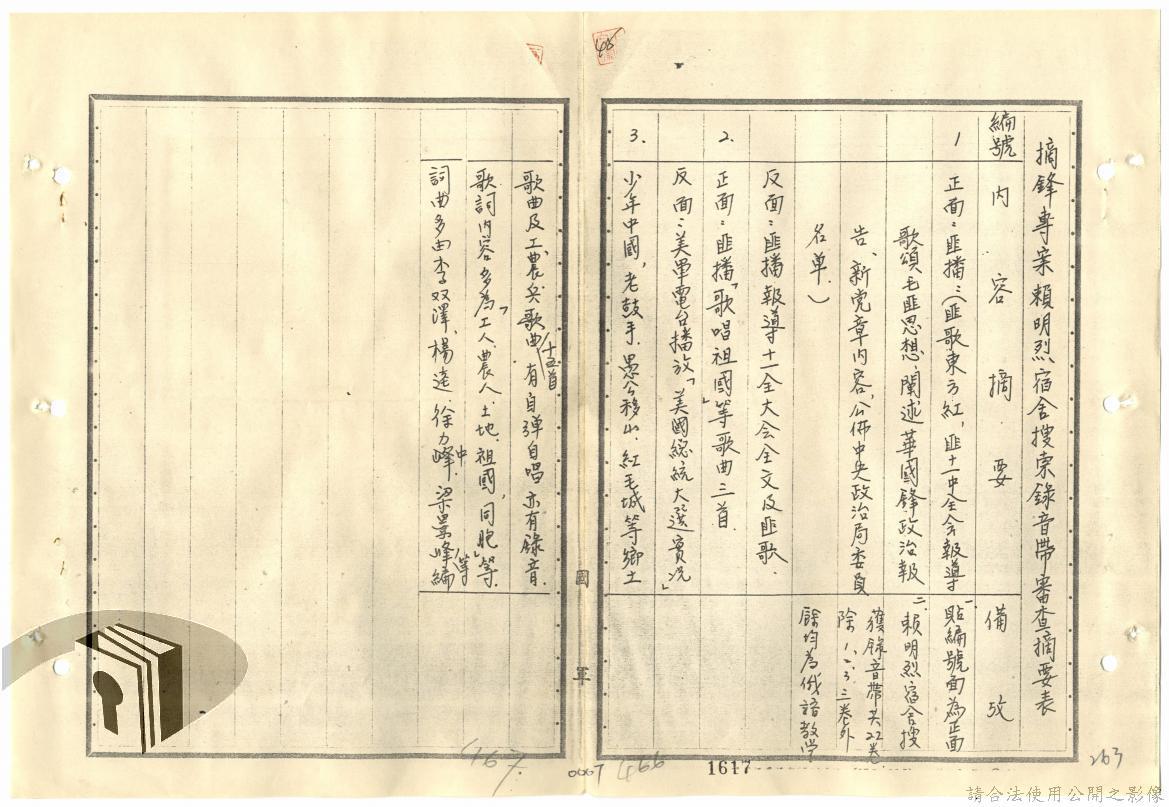 摘鋒專案賴明烈宿舍搜索錄音帶審查摘要表
編號
內容摘要
備攷
1
正面：匪播：(匪歌東方紅，匪十一中全會報導
歌頌毛匪思想、闡述華國鋒政治報
告、新党章內容、公佈中央政治局委員
名单、)
反面：匪播報導十一全大会全文及匪歌.
2.
正面：匪播「歌唱祖國」等歌曲三首.
反面：美軍電台播放「美國總統大選實況」
3.
少年中國，老鼓手、愚公移山、紅毛城等鄉土
歌曲及工、農、兵歌曲十五首，有自弹自唱亦有錄音.
歌詞內容多為「工人、農人、土地、祖國，同胞」等.
詞曲多由李双澤、楊逵、徐力中、梁景峰等編
一、貼編號面為正面
二、賴明烈宿舍搜
獲錄音帶共22卷
除1.2.3三卷外
餘均為俄語教学
國軍
46
467
0007
466
1617
263
請合法使用公開之影像